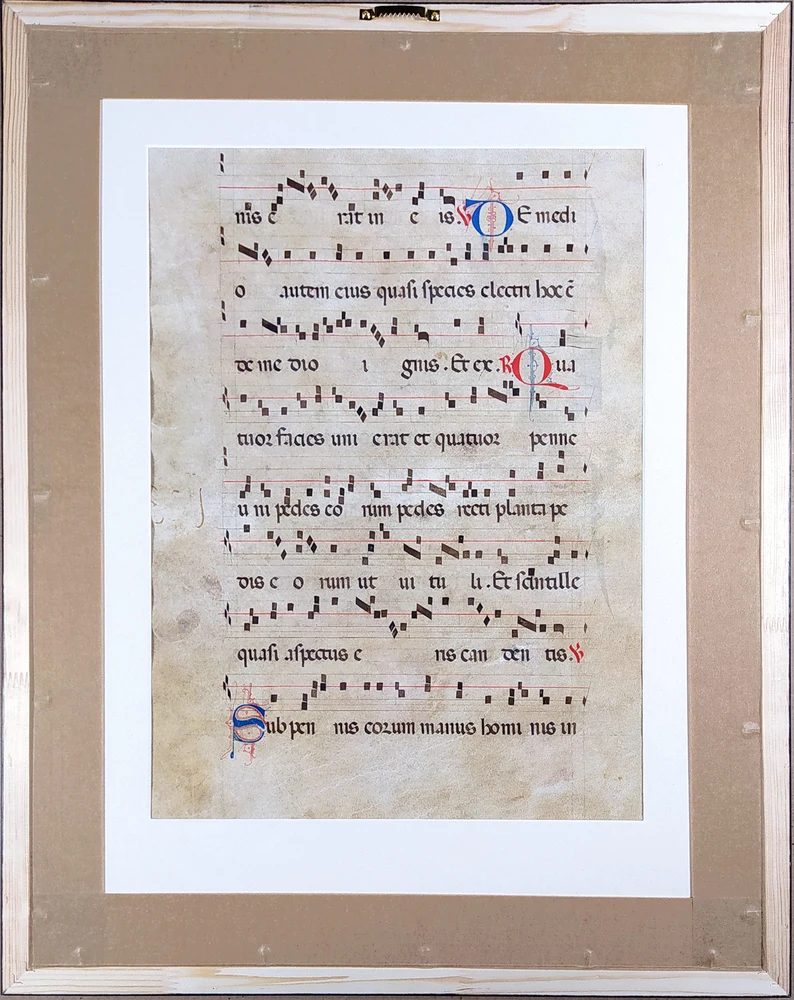 nis e rat in e is. ℣ DE medi
o autem eius quasi species electri hoc ē
de me dio i gnis. Et ex. R Qua
tuor facies uni erat et quatuor penne
u ni pedes eo rum pedes recti planta pe
dis e o rum ut ui tu li. Et scintille
quasi aspectus e ris can den tis. ℣
Sub pen nis eorum manus homi nis in